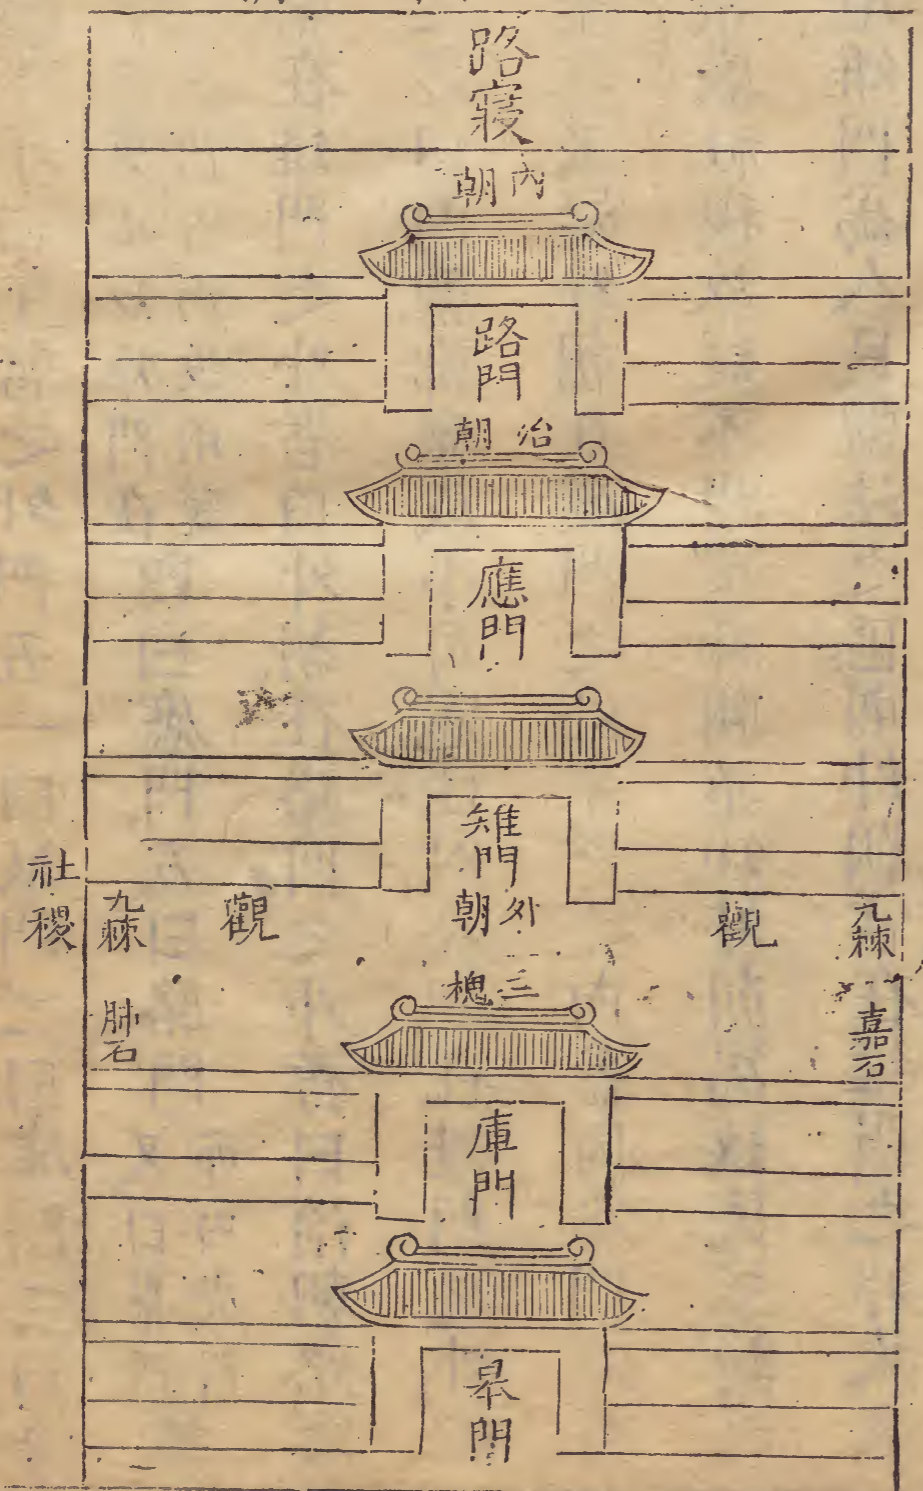 路寢
內朝
路門
治朝
應門
雉門
外朝
九棘
觀
觀
九棘
社稷
三槐
嘉石
肺石
庫門
皋門